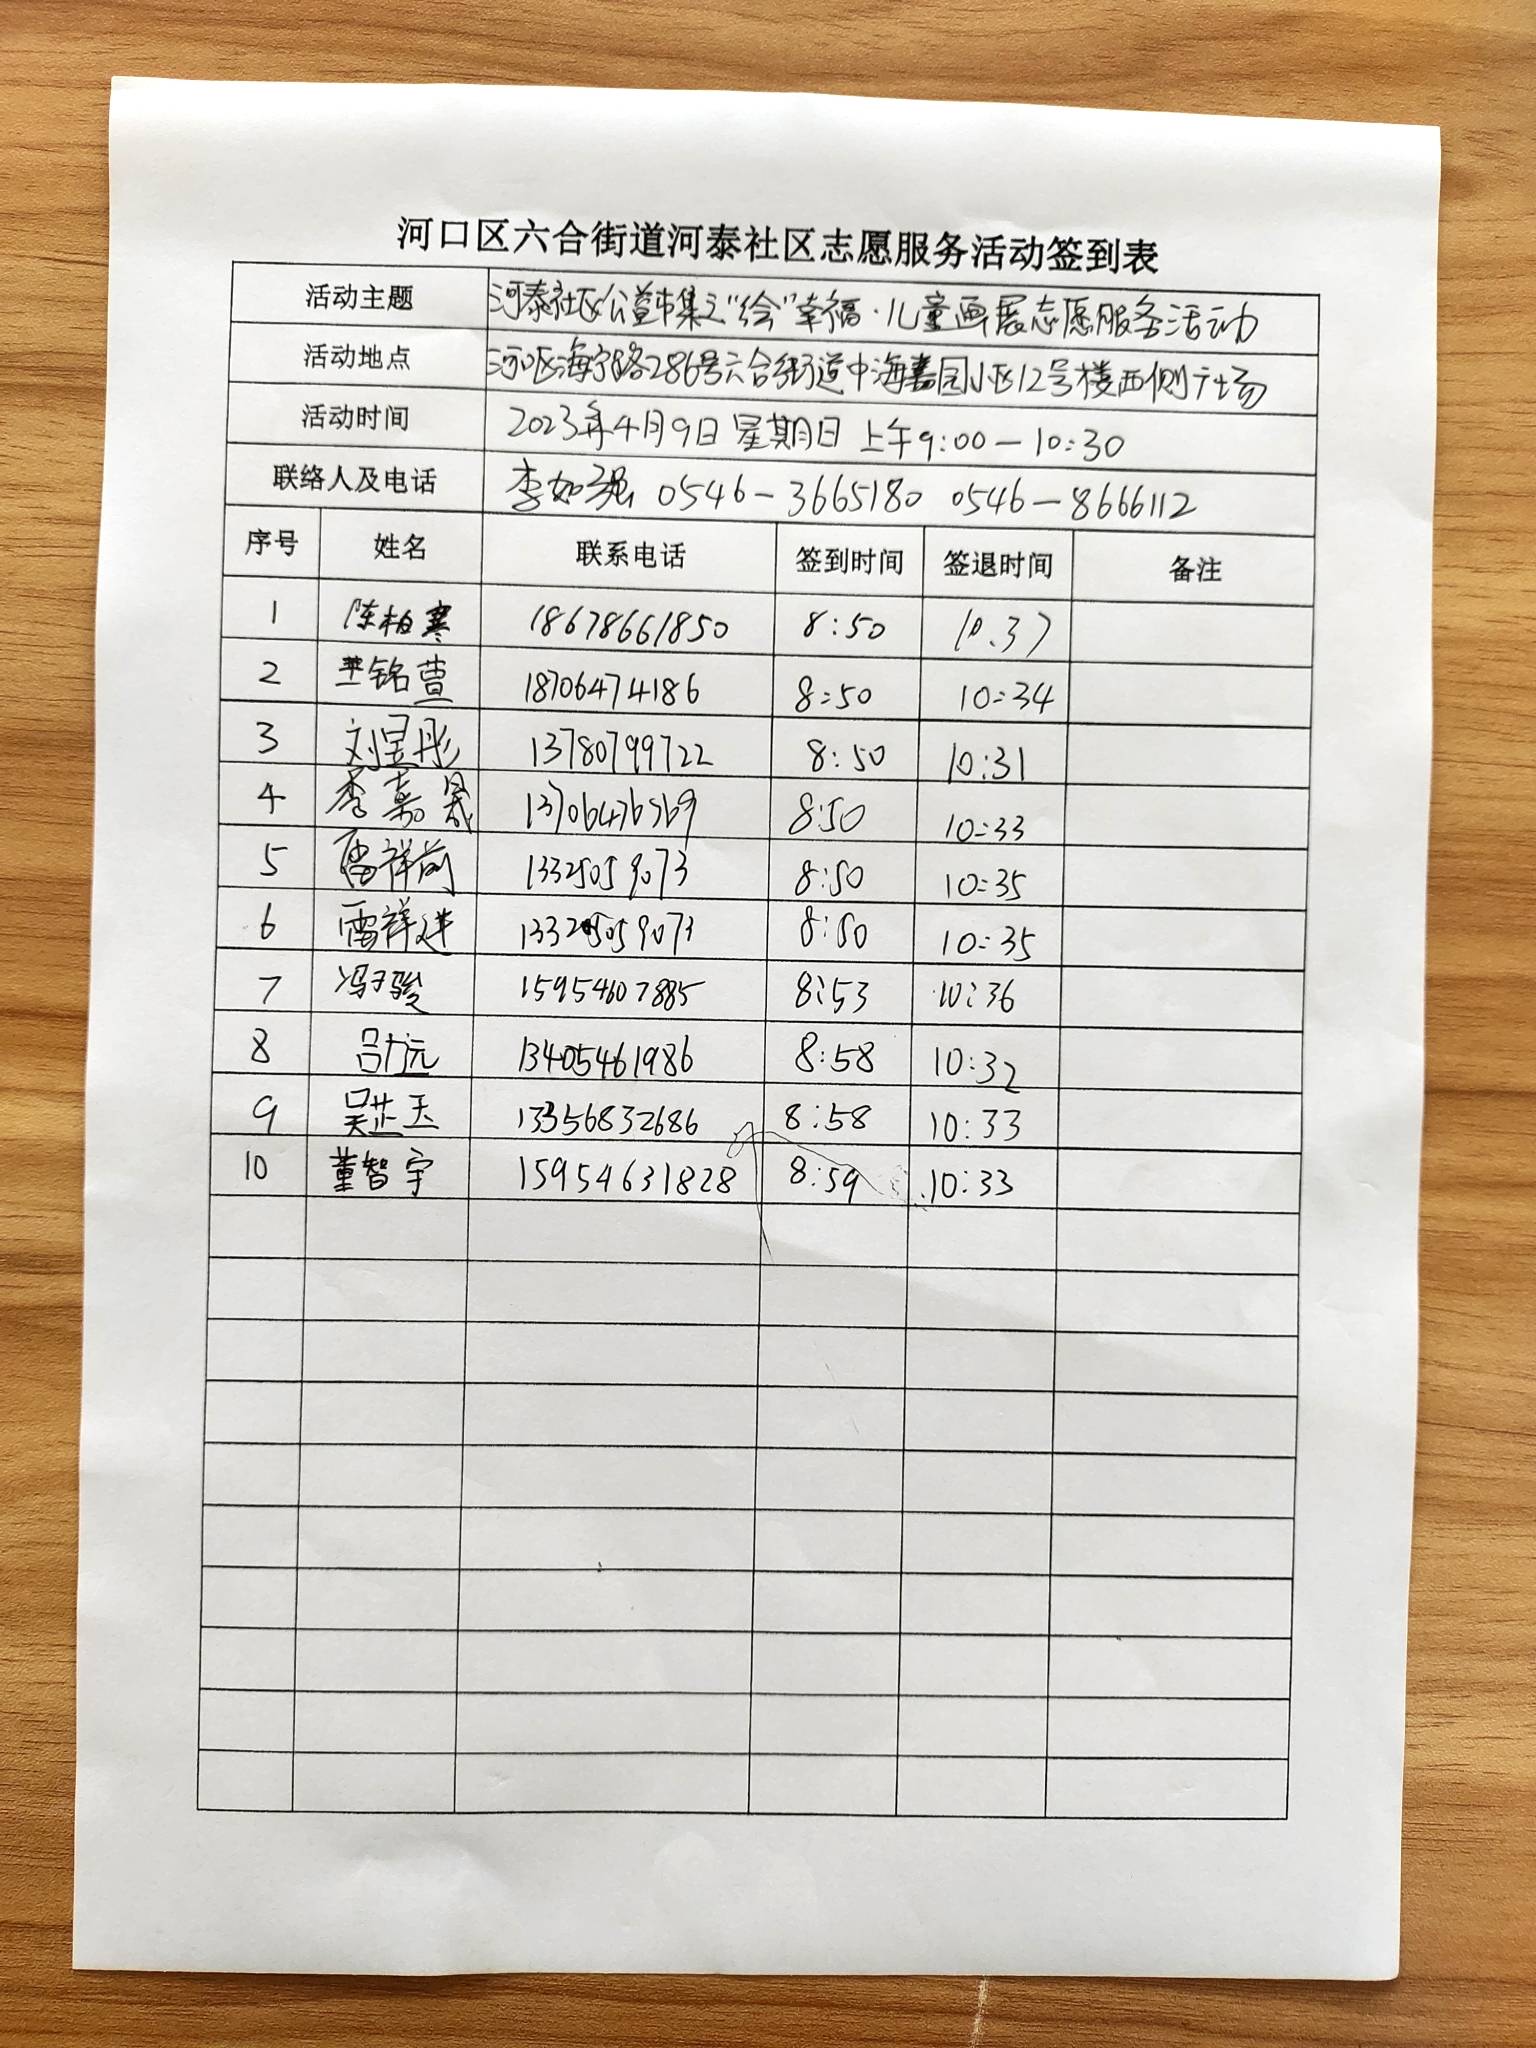 河口区六合街道河泰社区志愿服务活动签到表
活动主题 河泰社区公益市集之“绘”幸福·儿童画展志愿服务活动
活动地点 河口区海宁路286号六合街道中海嘉园小区12号楼西侧广场
活动时间 2023年4月9日 星期日 上午9:00—10:30
联络人及电话 李如强 0546-3665180 0546-8666112
序号 姓名 联系电话 签到时间 签退时间 备注
1 陈柏寒 18678661850 8:50 10.37
2 王铭萱 18706474186 8:50 10:34
3 刘昱彤 13780799722 8:50 10:31
4 李嘉晟 13706476569 8:50 10:33
5 雷祥前 13325059073 8:50 10:35
6 雷祥进 13325059073 8:50 10:35
7 冯子骏 15954607885 8:53 10:36
8 13405461986 8:58 10:32
9 吴芷玉 13356832686 8:58 10:33
10 董智宇 15954631828 8:59 10:33